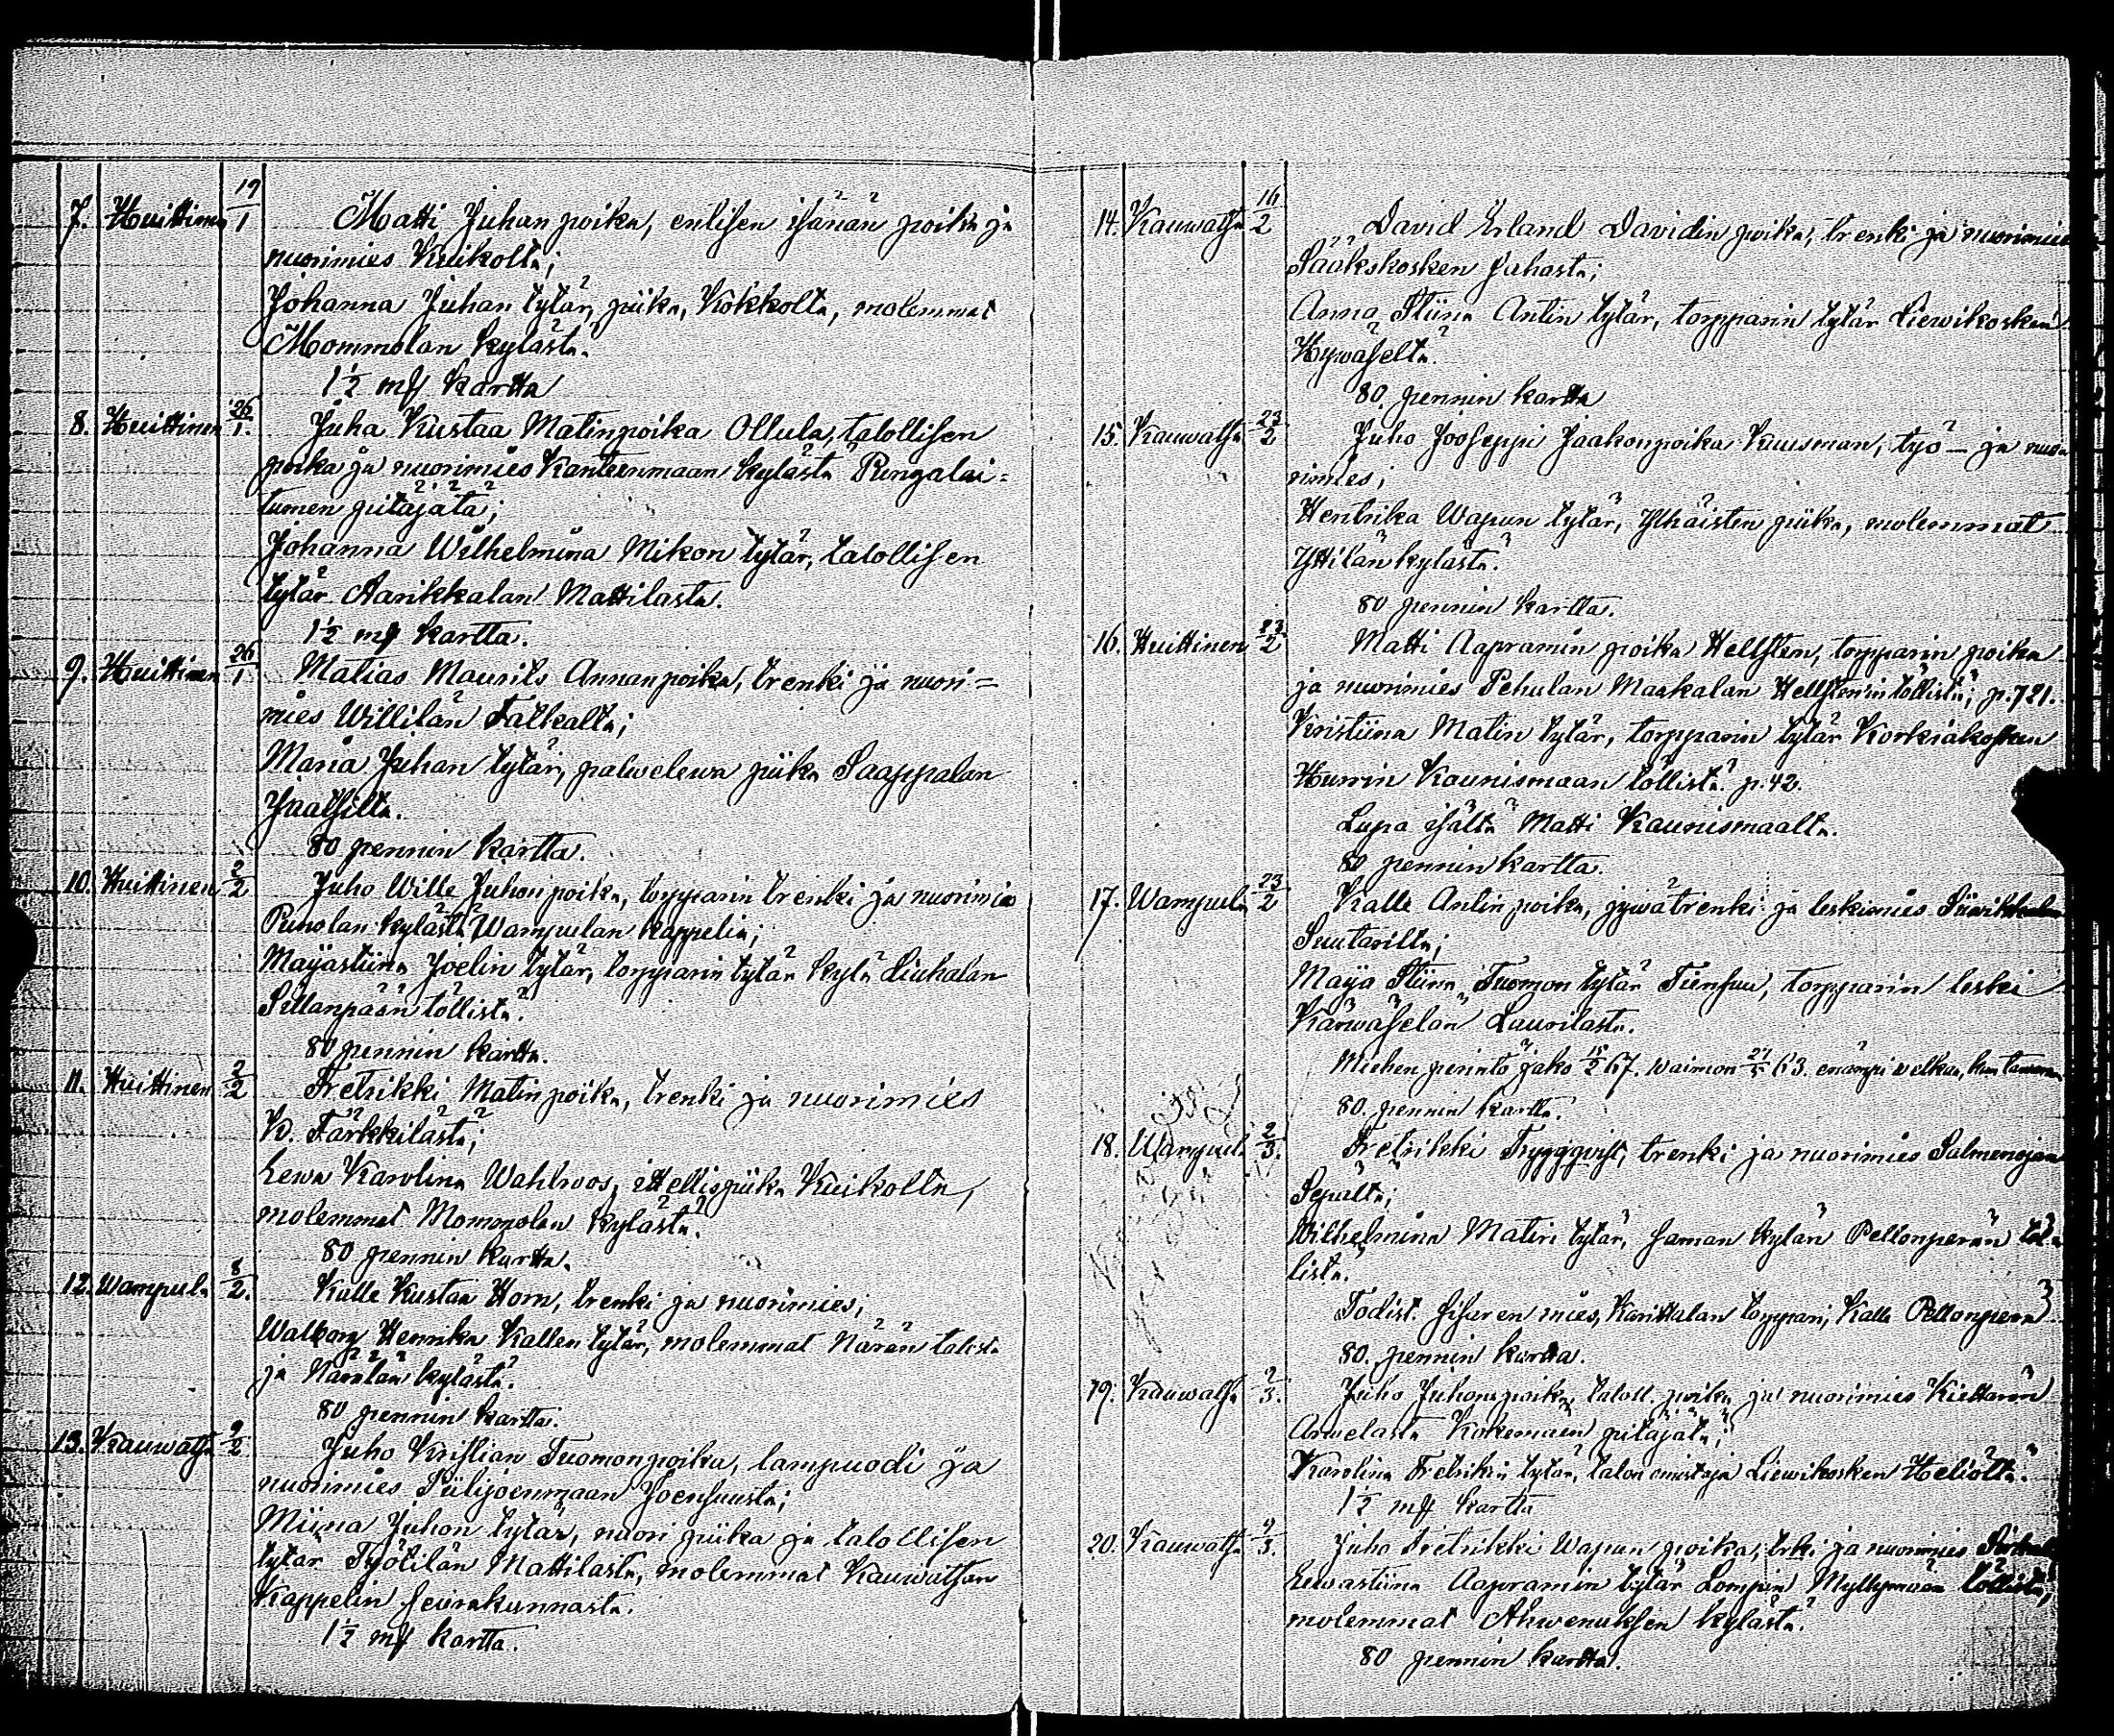 7. Huittinen 19/1 Matti Juhan poika, entisen isännän poika ja
nuorimies Kuikolta;
Johanna Juhan tytär, piika, Kokkolta, molemmat
Mommolan kylästä.
1½ mk kartta
8. Huittinen 26/1. Juha Kustaa Matinpoika Ollula, talollisen
poika ja nuorimies Kanteenmaan kylästä Pungalai=
tumen pitäjätä;
Johanna Wilhelmiina Mikon tytär, talollisen
tytär Aarikkalan Mattilasta.
1½ mk kartta.
9. Huittinen 26/1 Matias Maurits Annanpoika, trenki ja nuori=
mies Willilän Talkalta;
Maria Juhan tytär, palwelewa piika Saappalan
80 pennin kartta.
10. Huittinen 2/2 Juho Wille Juhonpoika, torpparin trenki ja nuorimies
Punolan kylästä Wampulan kappelia;
Maijastiina Joelin tytär, torpparin tytär kylä Liuhalan
Sillanpään töllistä.
80 pennin kartta.
11. Huittinen 2/2 Fretrikki Matinpoika, trenki ja nuorimies
K. Färkkilästä;
Eewa Karolina Wahlroos, ittellispiika Kuikolta,
molemmat Mommolan kylästä.
80 pennin kartta.
12. Wampula 8/2. Kalle Kustaa Horn, trenki ja nuorimies;
Walborg Henrika Kallen tytär, molemmat Närän talosta
ja Närälän kylästä.
80 pennin kartta.
13. Kauwatsa 9/2 Juho Kristian Tuomonpoika, lampuodi ja
nuorimies Piilijoenmaan Joensuusta;
Miina Juhon tytär, nuori piika ja talollisen
tytär Työtilän Mattilasta, molemmat Kauwatsan
Kappelin seurakunnasta.
1½ mk kartta.
14. Kauwatsa 16/2 David Erland Davidin poika, trenki ja nuorimies
Sääkskosken sahasta;
Anna Stiina Antin tytär, torpparin tytär Liewikosken
Hywäseltä.
80 pennin kartta
15. Kauwatsa 23/2 Juho Jooseppi Jaakonpoika Kuusman, työ- ja nuo
rimies;
Hentrika Wapun tytär, Ylhäisten piika, molemmat
Yttilän kylästä.
80 pennin kartta.
16. Huittinen 23/2 Matti Aapramin poika Hellsten, torpparin poika
ja nuorimies Pehulan Maakalan Hellstenin töllistä; p. 721.
Kristiina Matin tytär, torpparin tytär Korkiakosken
Hurrin Kaunismaan töllistä. p. 42.
Lupa isältä Matti Kaunismaalta.
80 pennin kartta.
17. Wampula 23/2 Kalle Antin poika, pywätrenki ja leskimies
Suutarilta;
Maija Stiina Tuomon tytär Tiensuu, torpparin leski
Kärwäselän Laurilasta.
Miehen perintö jako 15/2 67. waimon 63. enämpi welkaa, kun
80. pennin kartta.
18. Wampul. 2/3. Fretrikki Tryggqvist, trenki ja nuorimies Salmenojan
Sepältä;
Wilhelmiina Matin tytär, saman kylän Pellonperän töl
listä.
Todist. sisaren mies, Karittalan torppari, Kalle Pellonperä
80. pennin kartta.
19. Kauwatsa 2/3. Juho Juhonpoika, taloll. poika ja nuorimies Kiettaren
Arwelasta Kokemäen pitäjätä;
Karolina Fretrikin tytär, talon omistaja Liewikosken Heliöltä.
1½ mk kartta
20. Kauwatsa 9/3. Juho Fretrikki Wapun poika, trki ja nuorimies
Eewastiina Aapramin tytär Lompin Myllymäen töllistä,
molemmat Ahwenuksen kylästä.
80 pennin kartta.